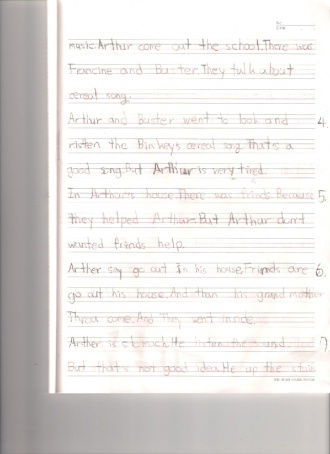 music. Arthur come out the school. There was
Francine and Buster. They talk about
cereal song.
Arthur and Buster went to look and 4.
risten the Binkeys cereal song. Thats a
good song. But Arthur is very tired.
In Arthur's house. There was frinds. Because 5.
they helped Arthur. But Arthur don't
wanted frinds help.
Arther say go out In his house. Friends are 6.
go out his house. And than his grand mother
Throra come. And They went inside.
Arther is He listen the sound. 7
But that's not good idea. He up the stair